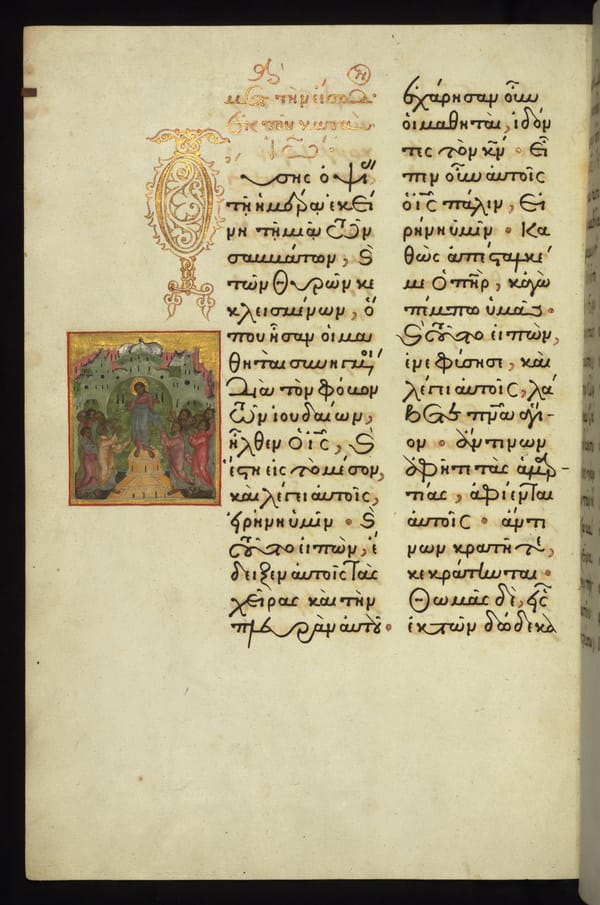 ὔσης ὀψί
τῇ ἡμέρᾳ ἐκεί
νη τῇ μιᾷ τῶν
σαββάτων, ϗ
τῶν θυρῶν κε
κλεισμένων, ὅ
που ἦσαν οἱ μα
θηταὶ συνηγμένοι
διὰ τὸν φόβον
τῶν ἰουδαίων,
ἦλθεν ὁ ἰς̅, ϗ
ἔστη εἰς τὸ μέσον,
καὶ λέγει αὐτοῖς,
εἰρήνη ὑμῖν · ϗ
τοῦτο εἰπὼν, ἔ
δειξεν αὐτοῖς τὰς
χεῖρας καὶ τὴν
πλευρὰν αὐτοῦ ·
ἐχάρησαν οὖν
οἱ μαθηταὶ, ἰδόν
τες τὸν κν̅ · εἶ
πεν οὖν αὐτοῖς
ὁ ἰς̅ πάλιν, εἰ
ρήνη ὑμῖν · κα
θὼς ἀπέσταλκέ
με ὁ πηρ̅, κἀγὼ
πέμπω ὑμᾶς ·
ϗ τοῦτο εἰπὼν,
ἐνεφύσησε, καὶ
λέγει αὐτοῖς, λά
βετε πνα̅ ἅγι-
ον · ἄν τινων
ἀφῆτε τὰς ἁμαρ-
τίας, ἀφίενται
αὐτοῖς · ἄν τι
νων κρατῆτε,
κεκράτηνται ·
Θωμᾶς δὲ, εἷς
ἐκ τῶν δώδεκα